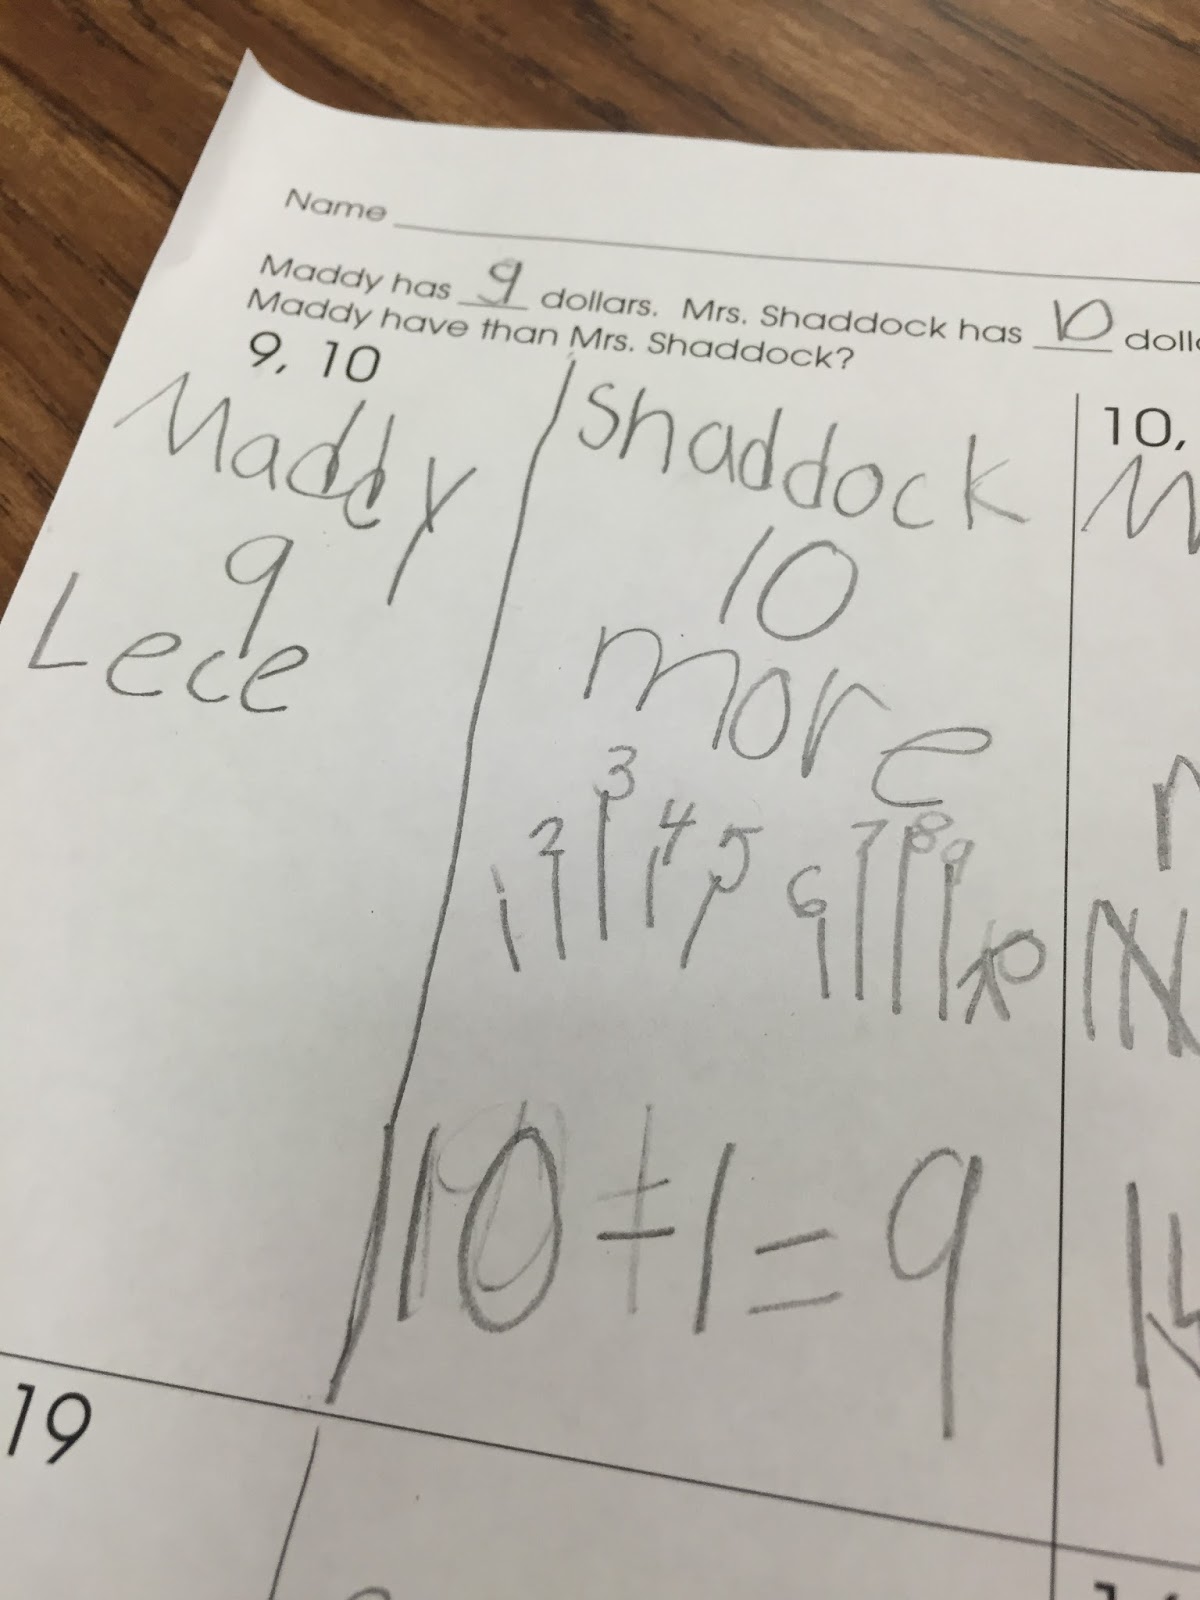 Name
Maddy has 9 dollars. Mrs. Shaddock has 10 dolla
Maddy have than Mrs. Shaddock?
9, 10
10,
Maddy
Shaddock
M
9
10
Lece
more
1 2 3 4 5 6 7 8 9 10
10 - 1 = 9
19